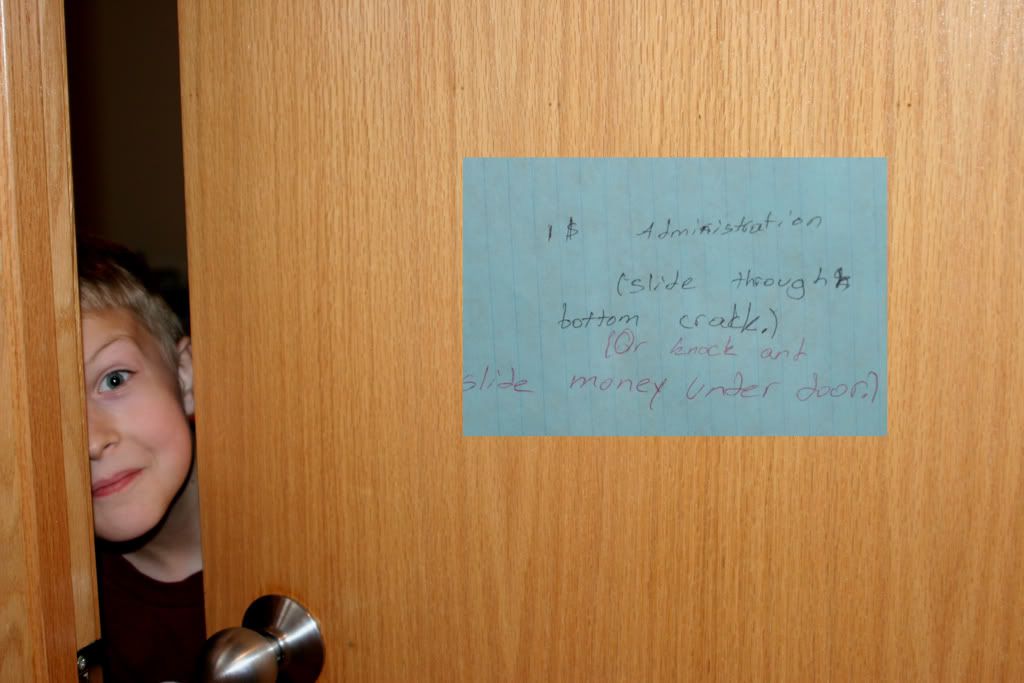 1$ Administration
(slide through
bottom crack.)
(Or knock and
slide money under door.)